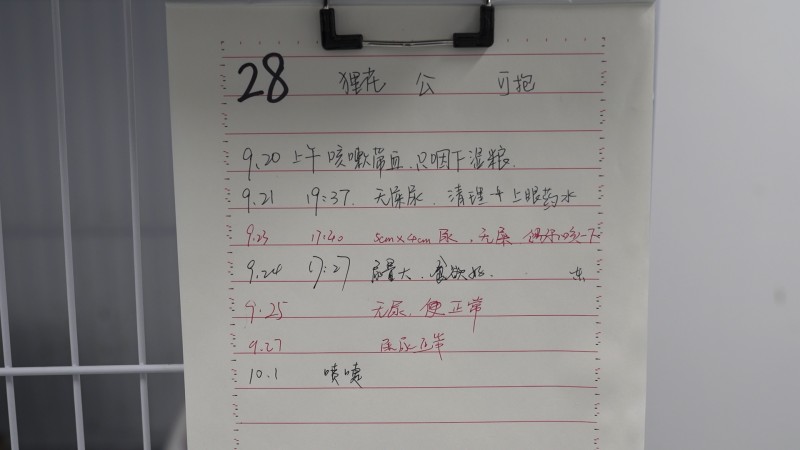 28 狸花 公 可抱
9.20 上午 咳嗽带血，只咽下湿粮.
9.21 19:37. 无屎尿. 清理+上眼药水
9.23 17:40 5cm×4cm 尿，无屎 一下
9.24 17:27 尿量大，食欲好. 东
9.25 无尿，便正常
9.27 屎尿正常
10.1 喷嚏